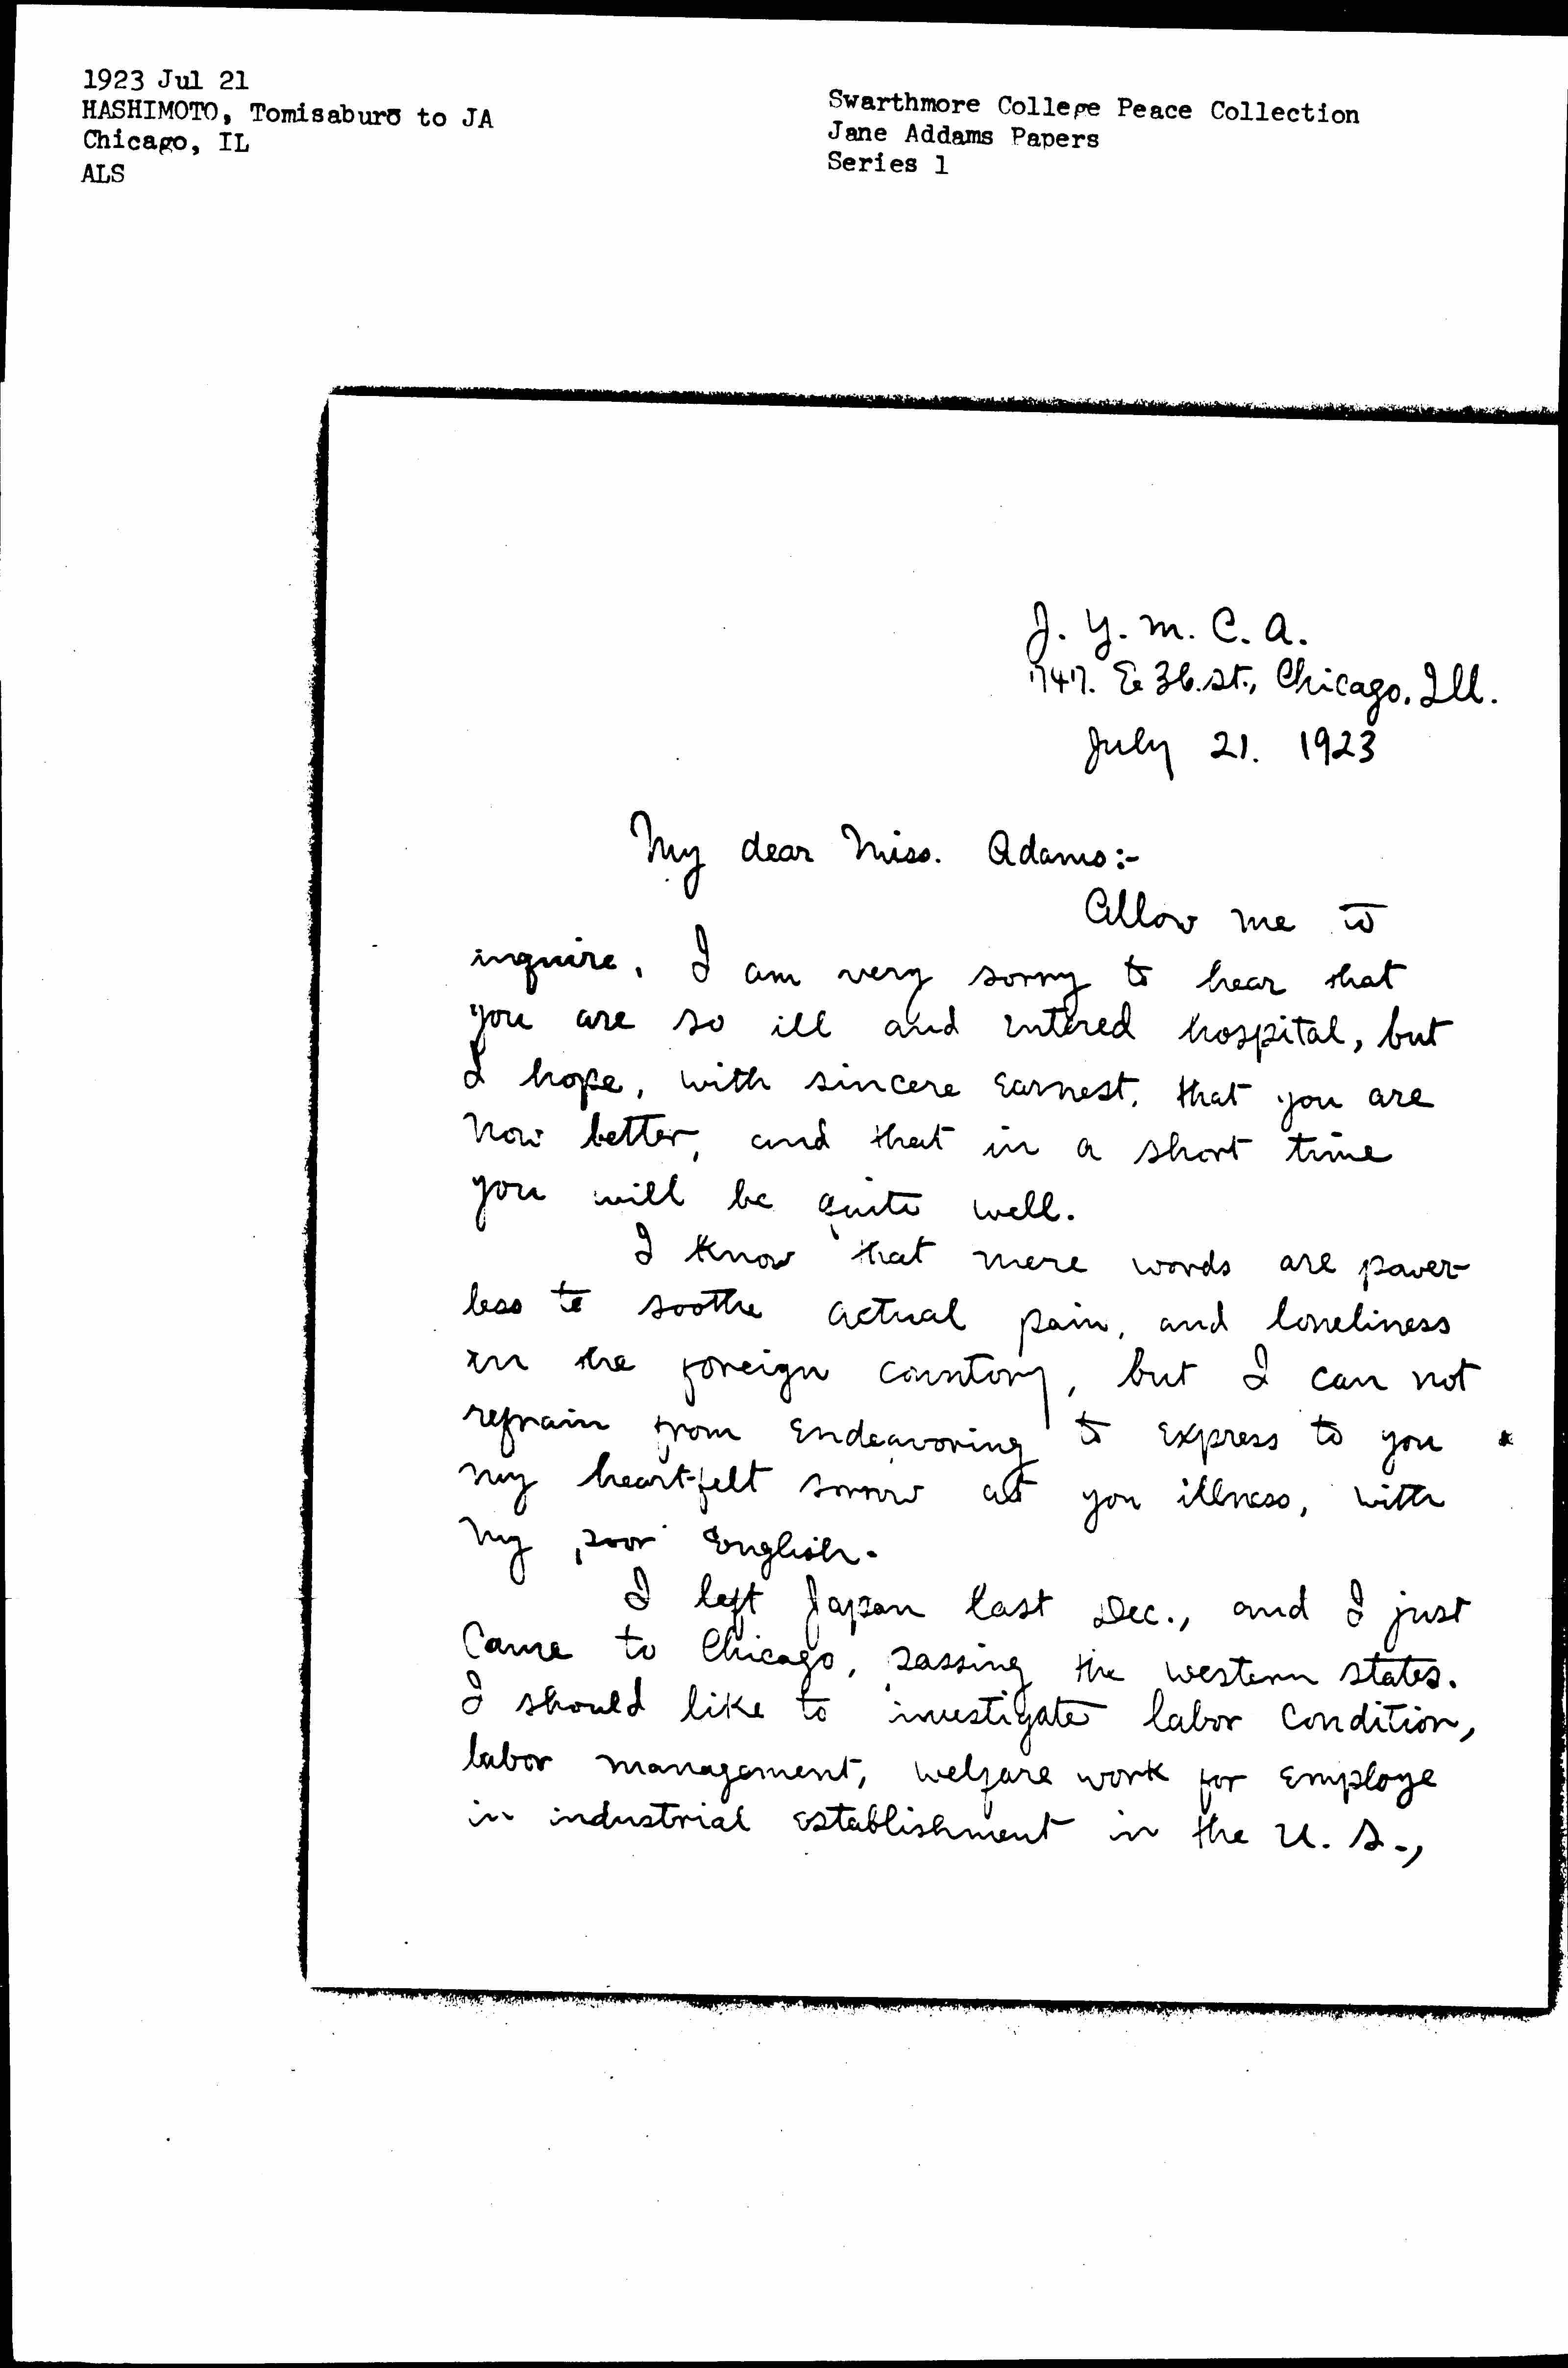 1923 Jul 21
HASHIMOTO, Tomisaburō to JA
Chicago, IL
ALS
Swarthmore College Peace Collection
Jane Addams Papers
Series 1
J. Y. M. C. A.
747. E 36. st., Chicago, Ill.
July 21. 1923
My dear Miss. Adams:-
Allow me to
inquire, I am very sorry to hear that
you are so ill and entered hospital, but
I hope, with sincere earnest, that you are
now better, and that in a short time
you will be quite well.
I know that mere words are power-
less to soothe actual pain, and loneliness
in the foreign countory, but I can not
refrain from endeavoring to express to you
my heart-felt sorrow at you illness, with
my poor English.
I left Japan last Dec., and I just
came to Chicago, passing the western states.
I should like to investigate labor condition,
labor management, welfare work for employe
in industrial establishment in the U. S.,